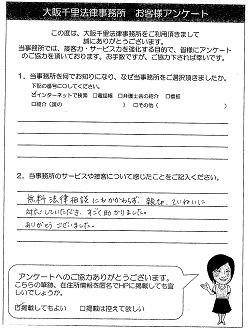 大阪千里法律事務所 お客様アンケート
この度は、大阪千里法律事務所をご利用頂きまして
誠にありがとうございます。
当事務所では、接客力・サービス力を強化する目的で、皆様にアンケート
のご協力を頂いております。お手数ですが、ご協力下されば幸いです。
1．当事務所を何でお知りになり、なぜ当事務所をご選択頂きましたか。
下記の番号に○してください。
☑インターネットで検索 □電話帳 □弁護士会の紹介 □看板
□紹介（誰の ）□その他（ ）
2．当事務所のサービスや接客について感じたことをご記入ください。
無料法律相談にもかかわらず、親切、ていねいに
対応していただき、すごく助かりました。
ありがとうございました。
アンケートへのご協力ありがとうございます。
こちらの筆跡、在住所情報を匿名でHPに掲載しても宜
しいでしょうか。
☑掲載してもよい □掲載は控えて欲しい